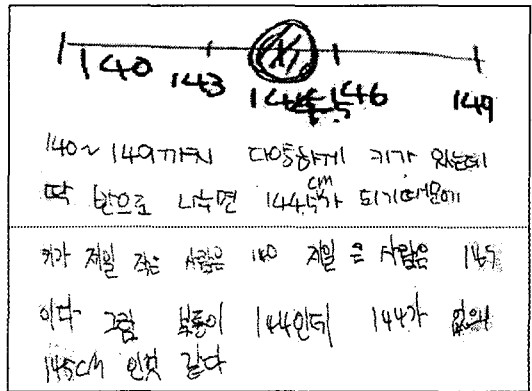 140 143 146 149
140~149까지 다양하게 키가 있는데
딱 반으로 나누면 144.5cm가 되기때문에
키가 제일 작은 사람은 140 제일 큰 사람은 149
이다 그럼 보통이 144인데 144가 없으니
145cm 인것 같다